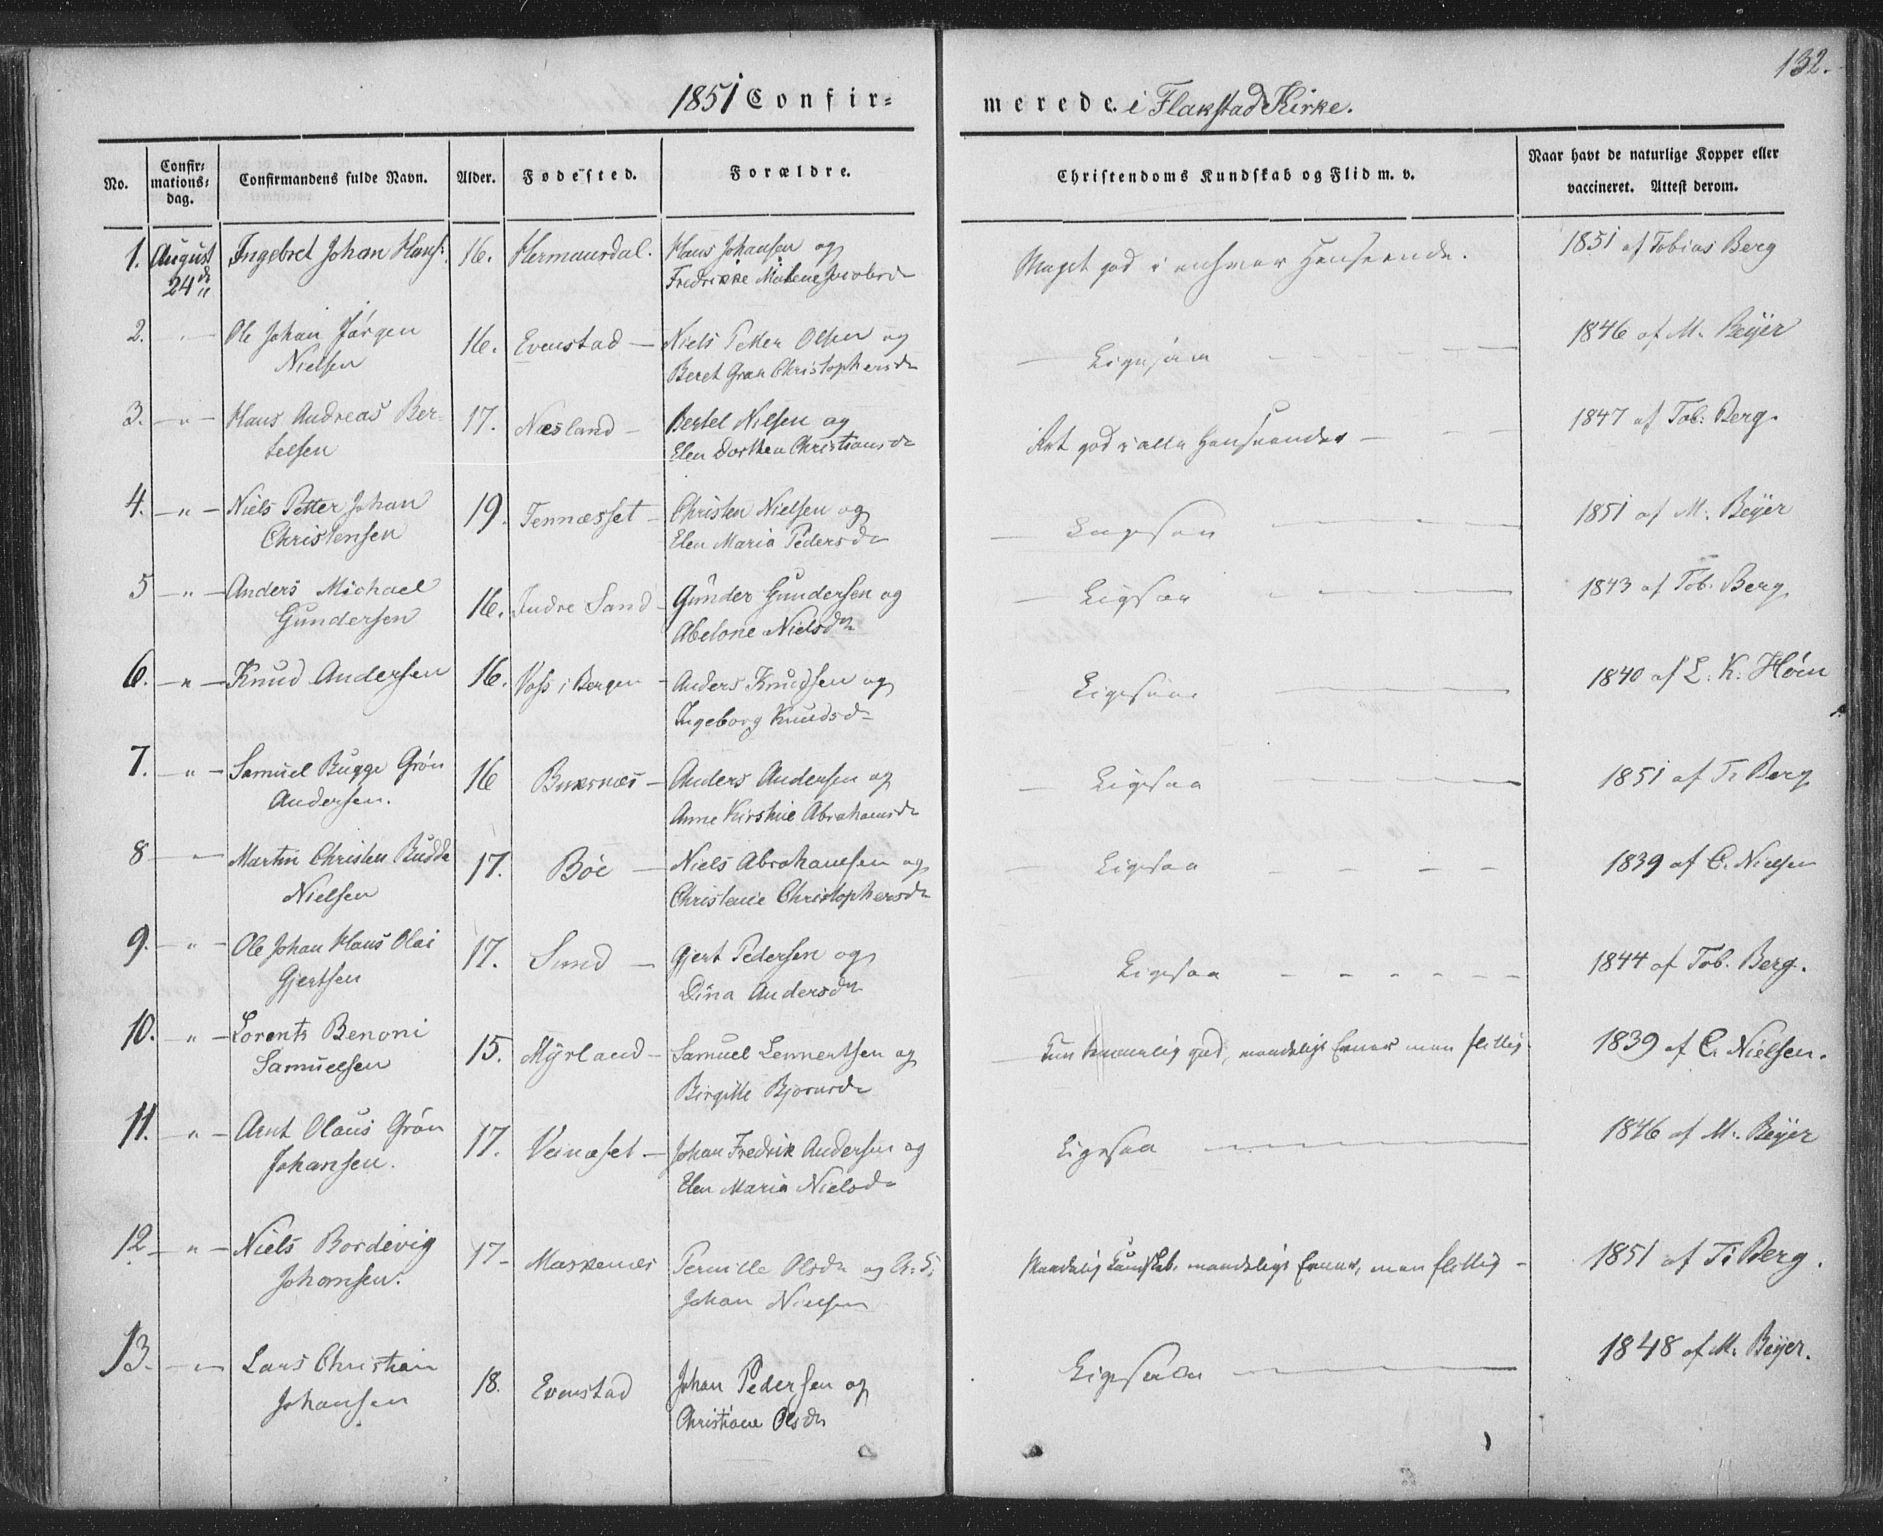 132.
1851 Confir= merede. i Flakstad Kirke.
No. Confir= mations= dag. Confirmandens fulde Navn. Alder. Fødested. Forældre. Christendoms Kundskab og Flid m. v. Naar havt de naturlige Kopper eller vaccineret. Attest derom.
1. August 24de Ingebret Johan Hans: 16. Hermansdal. Hans Johansen og Meget god i enhver Henseende. 1851 af Tobias Berg
Fredrikke Malene Jacobsd
2. " Ole Johan Jørgen 16. Evenstad — Niels Petter Olsen og — Ligesaa — 1846 af M. Beÿer
Nielsen Beret Grau Christophersd
3. — " — Hans Andreas Ber= 17. Næsland — Bertel Nilsen og Ret god i alle Henseender — 1847 af Tob: Berg.
telsen Elen Dorthea Christiansd
4. — " — Niels Petter Johan 19. Tennæsset — Christen Nielsen og — Ligesaa — 1851 af M. Beÿer
Christensen Elen Maria Pedersd
5 — " — Anders Michael 16. Indre Sand — Gunder Gundersen og — Ligesaa — 1843 af Tob. Berg
Gundersen Abelone Nielsdr
6. — " — Knud Andersen 16. Voss i Bergen — Anders Knudsen og — Ligesaa — 1840 af L. K. Høin
Ingeborg Knudsd
7. — " — Samuel Bugge Grön 16 Buksnæs — Anders Andersen og — Ligesaa — 1851 af T. Berg
Andersen. Anne Kirstine Abrahamsd
8 — " — Martin Christen Budde 17. Böe — Niels Abrahamsen og — Ligesaa — 1839 af C. Nielsen
Nielsen Christence Christophersd
9. — " — Ole Johan Hans Olai 17. Sund — Gjert Pedersen og Ligesaa — 1844 af Tob. Berg.
Gjertsen Dina Andersdr
10. — " — Lorents Benoni 15. Myrland — Samuel Lennertsen og — Kun temmelig god, maadelige Evner men flittig. 1839 af C. Nielsen.
Samuelsen Birgitte Bjornsd
11. — " — Arnt Olaus Grön 17. Veinæset — Johan Fredrik Andersen og Ligesaa — 1846 af M. Beÿer
Johansen. Elen Maria Nielsd
12 — " — Niels Bordevig 17 — Maskenes Pernille Olsdr og U. K. Maadelig Kundskab. maadelige Evner, men flittig — 1851 af T. Berg.
Johansen. Johan Nielsen
13. — " — Lars Christian 18. Evenstad Johan Pedersen og Ligesaa — 1848 af M. Beÿer.
Johansen Christiane Olsdr